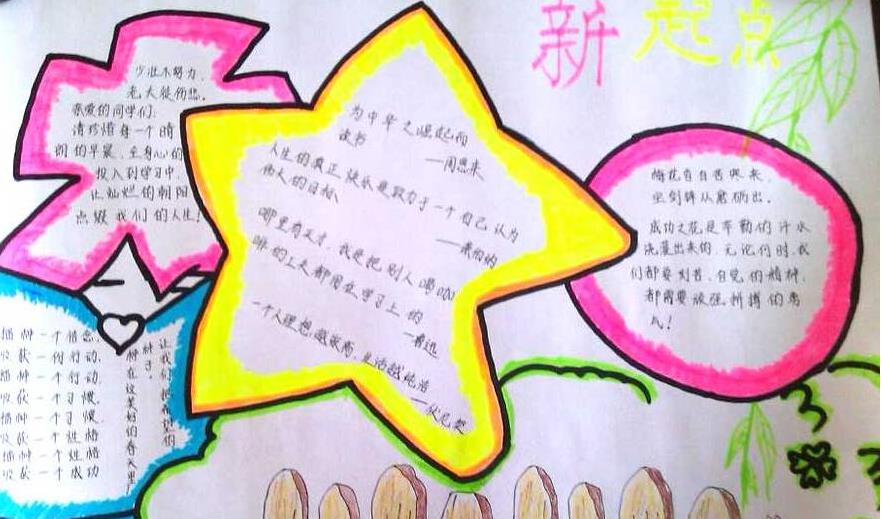 新起点
少壮不努力，
老大徒伤悲。
亲爱的同学们：
请珍惜每一个晴
朗的早晨、全身心的
投入到学习中，
让灿烂的朝阳
点缀我们的人生！
为中华之崛起而
读书
——周恩来
人生的真正快乐是致力于一个自己认为
伟人的目标
——萧伯纳
哪里有天才，我是把别人喝咖
啡的工夫都用在学习上的
——鲁迅
一个人理想越崇高，生活越纯洁
——伏尼契
梅花香自苦寒来，
宝剑锋从磨砺出。
成功之花是辛勤的汗水
浇灌出来的，无论何时，我
们都要刻苦、自觉的精神，
都需要顽强拼搏的勇
气！
播种一个信念，
收获一份行动，
播种一个行动，
收获一个习惯，
播种一个习惯，
收获一个性格
播种一个性格
收获一个成功
让我们把希望的
种子，
种在这美好的春天里！